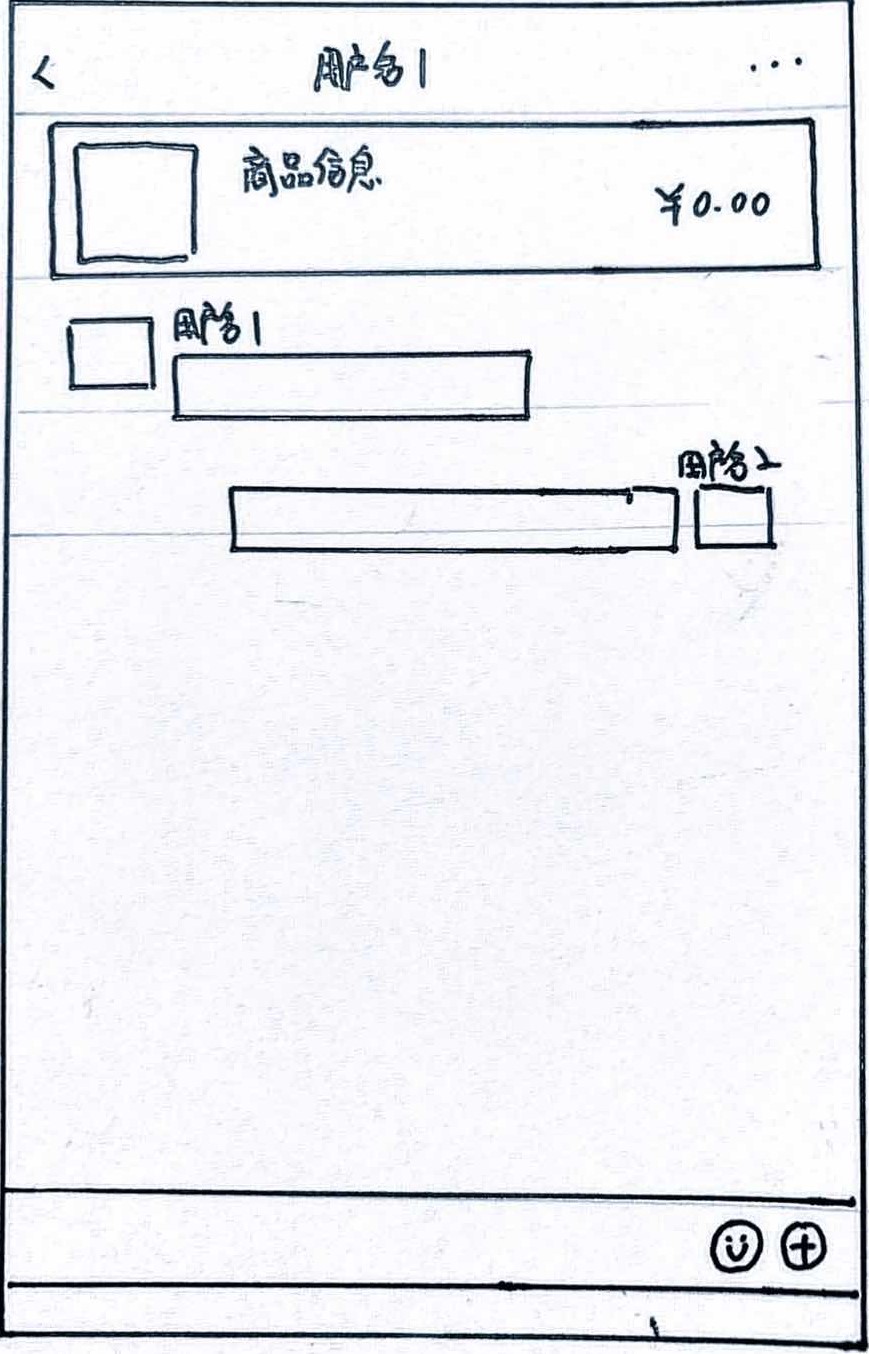 < 用户名1 ...
商品信息
¥0.00
用户名1
用户名2